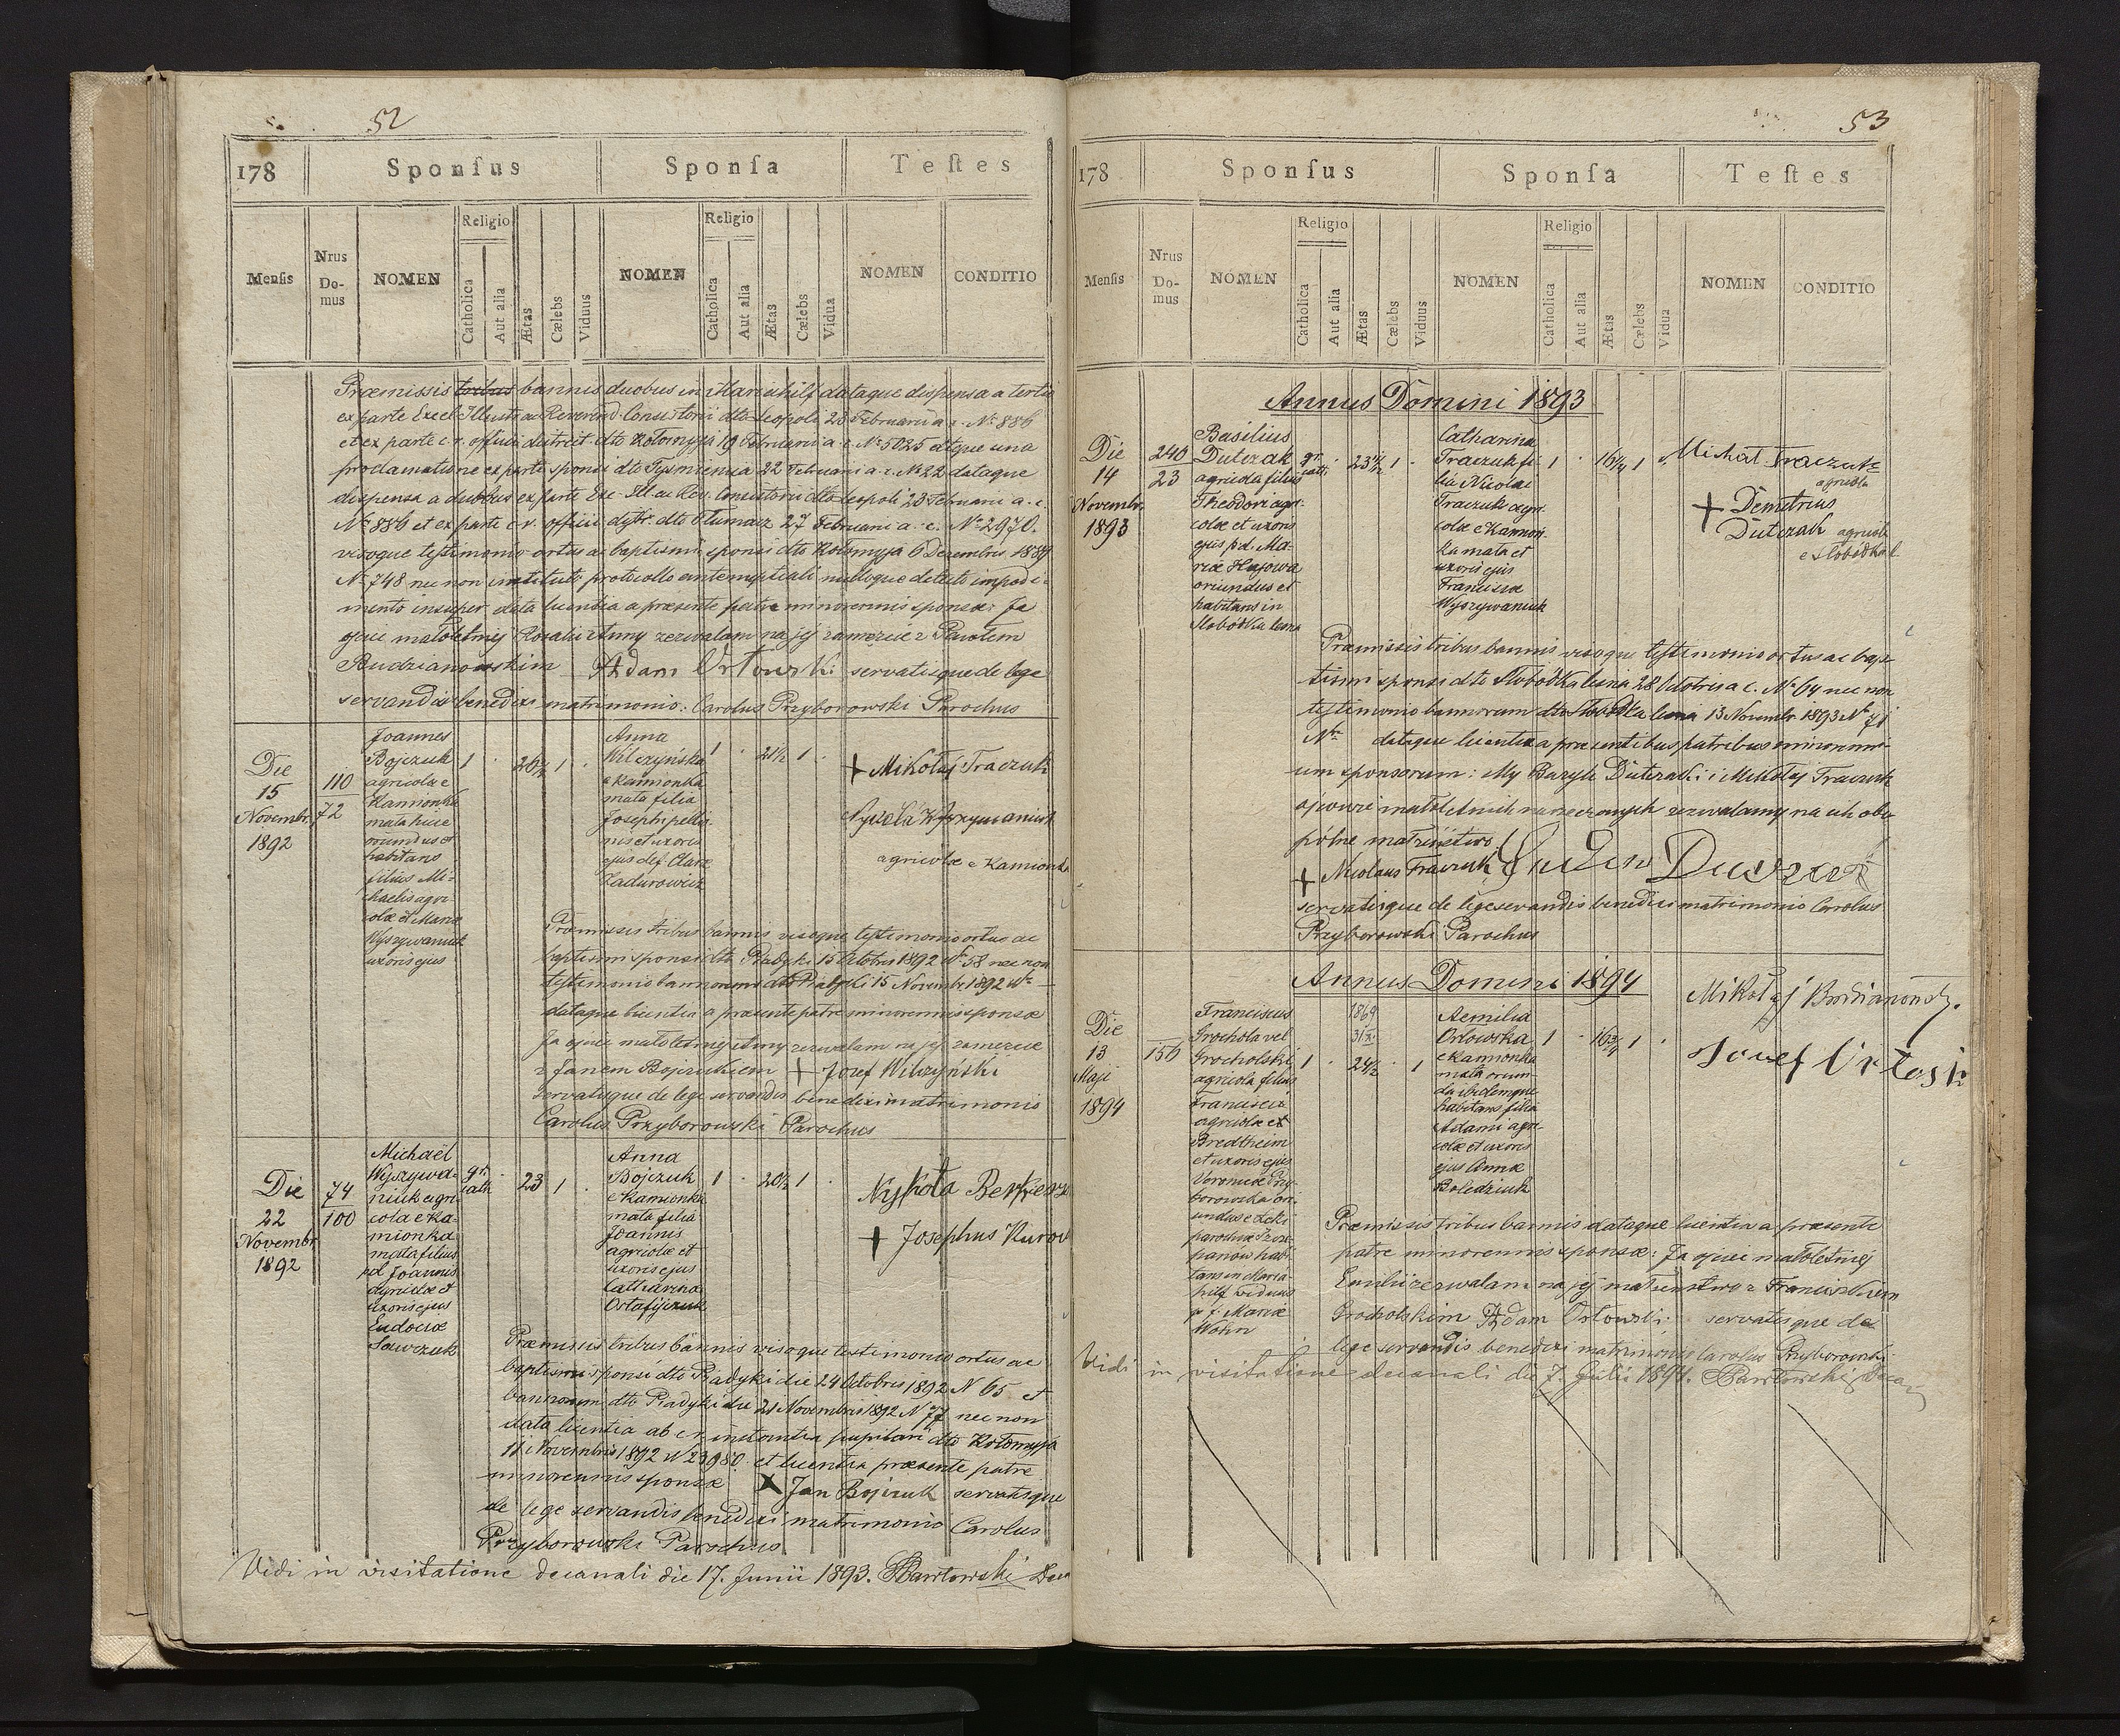 52
178
Sponſus
Sponſa
Teſtes
Menſis
Nrus Domus
NOMEN
Religio
Catholica
Aut alia
Ætas
Cælebs
Viduus
NOMEN
Religio
Catholica
Aut alia
Ætas
Cælebs
Vidua
NOMEN
CONDITIO
Præmissis bannis duobus in Mariahilf dataque dispensa a tertio
ex parte Excel. Illustr. ac Reverend. Consistorii dto Leopoli 23 Februarii a. c. № 886
et ex parte c. r. officii district. dto Kołomyja 19 Februarii a. c. № 5025 atque una
proclamatione ex parte sponsi dto Tyśmienica 22 Februarii a. c. № 22 dataque
dispensa a duobus ex parte Exc. Ill. ac Rev. Consistorii dto Leopoli 23 Februarii a. c.
№ 886 et ex parte c. r. officii dto Tłumacz 27 Februarii a. c. № 2970.
visoque testimonio ortus ac baptismi sponsi dto Kołomyja 6 Decembris 1889
№ 748 nec non instituto protocollo antenuptiali nulloque detecto impedi-
mento insuper data licentia a præsente patre minorennis sponsæ: Ja
ojciec małoletniej Rozalii Anny zezwalam na jej zamęźcie z Pawłem
Budzianowskim Adam Orłowski servatisque de lege
servandis benedixi matrimonio: Carolus Przyborowski Parochus
Die
15
Novembr.
1892
110
72
Joannes
Bojczuk
agricola e
Kamionka
mata huie
oriundus et
habitans
filius Mi-
chaelis agri-
colæ et Mariæ
Wyszywaniuk
uxoris ejus
1 . 26½ 1 .
Anna
Wilczyńska
e Kamionka
mata filia
Josephi pellio-
nis et uxoris
ejus def. Claræ
Zadurowicz
1 . 21½ 1 .
+ Mikołaj Traczuk
Wyszywaniuk
agricolæ e Kamionka
Præmissis tribus bannis visoque testimonio ortus ac
baptismi sponsi dto Piadyki 15 Octobris 1892 № 58 nec non
testimonio bannorum dto Piadyki 15 Novembr 1892 №
dataque licentia a præsente patre minorennis sponsæ
Ja ojciec małoletniej Anny zezwalam na jej zamęźcie
z Janem Bojczukiem + Jozef Wilczyński
servatisque de lege servandis benedixi matrimonio
Carolus Przyborowski Parochus
Die
22
Novembr.
1892
74
100
Michaël
Wyszywa-
niuk agri-
cola e Ka-
mionka
mata filius
pd. Joannis
agricolæ et
uxoris ejus
Eudociæ
Sawczuk
gr. cath. . 23 1 .
Anna
Bojczuk
e Kamionka
mata filia
Joannis
agricolæ et
uxoris ejus
Catharina
Ostafijczuk
1 . 20½ 1 .
Nykoła
+ Josephus
Præmissis tribus bannis visoque testimonio ortus ac
baptismi sponsi dto Piadyki die 24 Octobris 1892 N 65 et
bannorum dto Piadyki die 21 Novembris 1892 N 77 nec non
data licentia ab c. r. instantia pupilari dto Kołomyja
11 Novembris 1892 N 23980 et licentia præsente patre
minorennis sponsæ + Jan Bojczuk servatisque
de lege servandis benedixi matrimonio Carolus
Przyborowski Parochus
Vidi in visitatione decanali die 17. Junii 1893. Pawłowski
53
178
Sponſus
Sponſa
Teſtes
Menſis
Nrus Domus
NOMEN
Religio
Catholica
Aut alia
Ætas
Cælebs
Viduus
NOMEN
Religio
Catholica
Aut alia
Ætas
Cælebs
Vidua
NOMEN
CONDITIO
Annus Domini 1893
Die
14
Novembr.
1893
240
23
Basilius
Dutczak
agricola filius
Theodori agri-
colæ et uxoris
ejus pd. Ma-
riæ Hajowa
oriundus et
habitans in
Słobodka leśna
gr. cath. . 23½ 1 .
Catharina
Traczuk fi-
lia Nicolai
Traczuk agri-
colæ e Kamion-
ka mata et
uxoris ejus
Franciscæ
Wyszywaniuk
1 . 16¼ 1 .
Michał Traczuk
agricola
+ Demetrius
Dutczak agricola
e Słobodka l.
Præmissis tribus bannis visoque testimonio ortus ac bap-
tismi sponsi dto Słobodka leśna 28 Octobris a. c. № 64 nec non
testimonio bannorum dto Słobodka leśna 13 Novembr 1893 № 71
№ dataque licentia a præsentibus patribus minorenni-
um sponsorum: My Bazyli Dutczak i Mikołaj Traczuk
ojcowie małoletnich narzeczonych zezwalamy na ich obo-
pólne matżeństwo
+ Nicolaus Traczuk
servatisque de lege servandis benedixi matrimonio Carolus
Przyborowski Parochus
Annus Domini 1894
Die
13
Maji
1894
156
Franciscus
Grochola vel
Grocholski
agricola filius
Francisci
agricolæ et
Bredtheim
et uxoris ejus
Veronicæ Przy-
borowska ori-
undus e Łęki
parochiæ Szcze-
panow habi-
tans in Maria-
hilf viduus
p. f. Mariæ
Wohn
1869
31/X
1 . 24½ . 1
Aemilia
Orłowska
e Kamionka
mata oriun-
da ibidemque
habitans filia
Adami agri-
colæ et uxoris
ejus Annæ
Boledziuk
1 . 16¾ 1 .
Mikołaj Budzianowsk.
Jozef
Præmissis tribus bannis dataque licentia a præsente
patre minorennis sponsæ: Ja ojciec małoletniej
Emilii zezwalam na jej matżeństwo z Franciszkiem
Grocholskim Adam Orłowski: servatisque de
lege servandis benedixi matrimonio Carolus Przyborowski
Vidi in visitatione decanali die 7. Julii 1894. Pawłowski